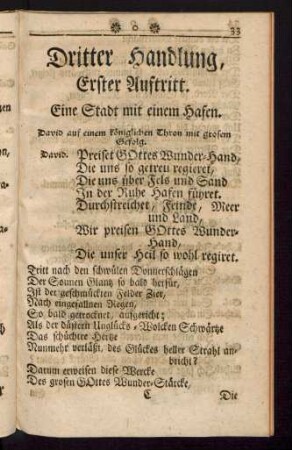 33
Dritter Handlung,
Erster Auftritt.
Eine Stadt mit einem Hafen.
David auf einem königlichen Thron mit grosem
Gefolg.
David. Preiset GOttes Wunder-Hand,
Die uns so getreu regieret,
Die uns über Fels und Sand
In der Ruhe Hafen führet.
Durchstreichet, Feinde, Meer
und Land,
Wir preisen GOttes Wunder-
Hand,
Die unser Heil so wohl regiret.
Tritt nach den schwülen Donnerschlägen
Der Sonnen Glantz so bald herfür,
Ist der geschmückten Felder Zier,
Nach eingefallnen Regen,
So bald getrocknet, aufgericht;
Als der düstern Unglücks-Wolcken Schwärtze
Das schüchtre Hertze
Nunmehr verläßt, des Glückes heller Strahl an-
bricht?
Darum erweisen diese Wercke
Des grosen GOttes Wunder-Stärcke,
C Die